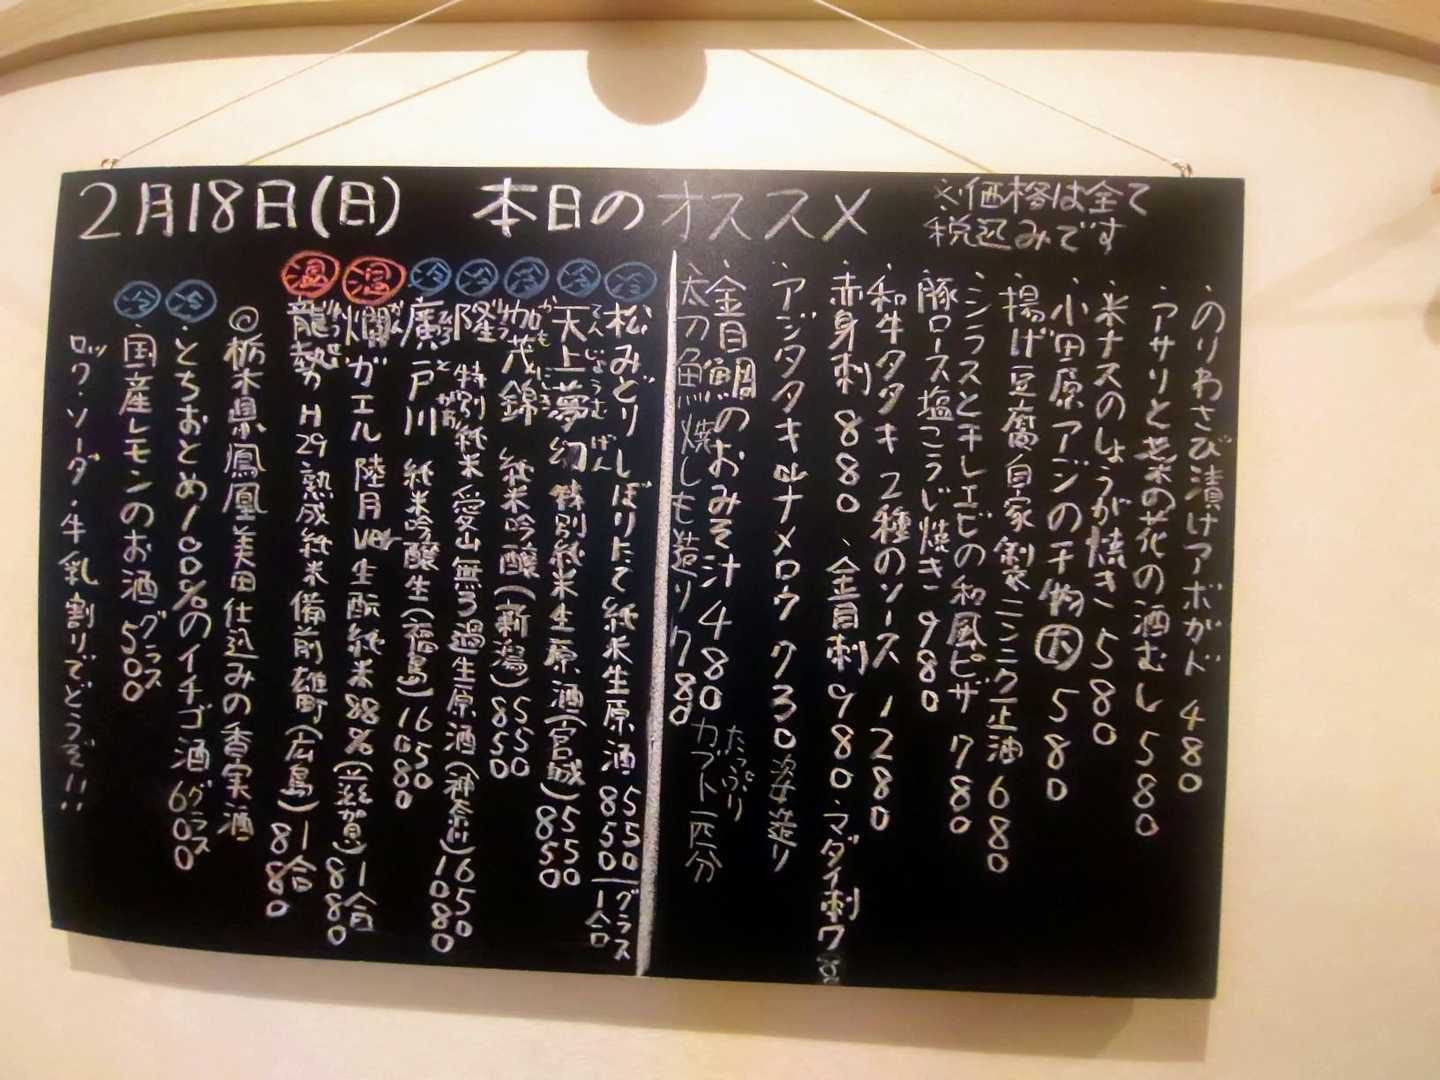 2月18日(日) 本日のオススメ
※価格は全て
税込みです
・のりわさび漬けアボガド 480
・アサリと菜の花の酒むし 580
・米ナスのしょうが焼き 580
・小田原アジの干物 大 580
・揚げ豆腐自家製ニンニク正油 680
・シラスと干しエビの和風ピザ 780
・豚ロース塩こうじ焼き 980
・和牛タタキ 2種のソース 1280
・赤身刺 880 ・金目刺 980 ・マダイ刺 78
・アジタタキorナメロウ 730 姿造り
・金目鯛のおみそ汁 480 たっぷりカブト一匹分
・太刀魚焼しも造り 780
冷 松みどり しぼりたて 純米生原酒 550 グラス 850 1合
冷 天上夢幻 てんじょうむげん 特別純米生原酒(宮城) 550 850
冷 加茂錦 かもにしき 純米吟醸(新潟) 550 850
冷 隆 りゅう 特別純米 愛山 無ろ過生原酒(神奈川) 650 1080
冷 廣戸川 ひろとがわ 純米吟醸生(福島) 650 1080
温 燗ガエル 陸月ver 生酛純米 88%(滋賀) 1合 880
温 龍勢 H29熟成純米 備前雄町(広島) 1合 880
◎栃木県鳳凰美田仕込みの香実酒
冷 とちおとめ100%のイチゴ酒 グラス 600
冷 国産レモンのお酒 グラス 500
ロック・ソーダ・牛乳割りでどうぞ!!